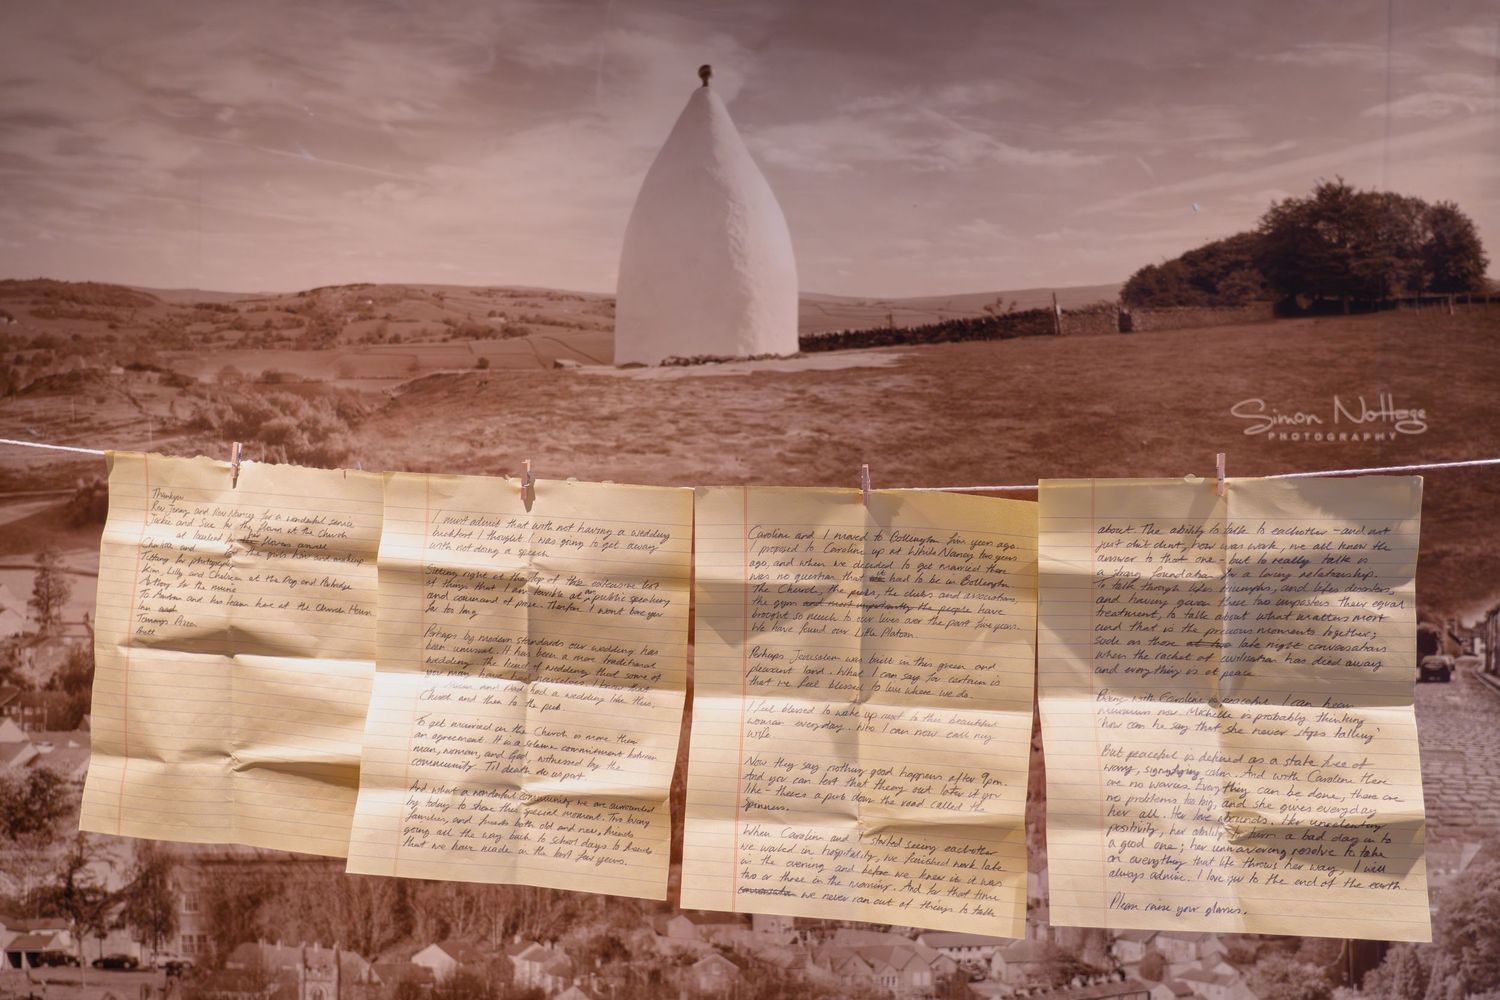 Simon Nottage
PHOTOGRAPHY
Thankyou
Rev Jenny and Rev Nancy for a wonderful service
Jackie and Sue for the flowers at the Church
at for flowers
and for the girls hair and makeup
for photography
Kim, Lilly and Chelsea at the Dog and Partridge
for the music
To and his team here at the Church House
Inn
I must admit that with not having a wedding
breakfast I thought I was going to get away
with not doing a speech
Sitting right at the top of the extensive list
of things that I am terrible at is public speaking
and command of prose. Therefore I wont bore you
for too long
Perhaps by modern standards our wedding has
been unusual. It has been a more traditional
wedding. The kind of wedding that some of
you may have had yourselves. I know that
and Dad had a wedding like this,
Church and then to the pub.
To get married in the Church is more than
an agreement. It is a solemn commitment between
man, woman, and God, witnessed by the
community. Til death do us part.
And what a wonderful community we are surrounded
by today to share this special moment. Two loving
families, and friends both old and new, friends
going all the way back to school days to friends
that we have made in the last few years.
Caroline and I moved to Bollington five years ago.
I proposed to Caroline up at White Nancy two years
ago, and when we decided to get married there
was no question that it had to be in Bollington.
The Church, the pubs, the clubs and associations,
the gym and most importantly the people have
brought so much to our lives over the past five years.
We have found our Little Platoon.
Perhaps Jerusalem was built in this green and
pleasant land. What I can say for certain is
that we feel blessed to live where we do.
I feel blessed to wake up next to this beautiful
woman everyday. Who I can now call my
wife.
Now they say nothing good happens after 9pm.
And you can test that theory out later if you
like - theres a pub down the road called the
Spinners.
When Caroline and I started seeing eachother
we worked in hospitality, we finished work late
in the evening and before we knew it it was
two or three in the morning. And for that time
conversation we never ran out of things to talk
about. The ability to talk to eachother - and not
just chit chat, how was work, we all know the
answer to that one - but to really talk is
a strong foundation for a loving relationship.
To talk through lifes triumphs, and lifes disasters,
and having given those two imposters their equal
treatment, to talk about what matters most
and that is the precious moments together;
such as those late night conversations
when the racket of civilisation has died away
and everything is at peace
Being with Caroline is peaceful. I can hear
murmurs now. Michelle is probably thinking
'how can he say that she never stops talking'
But peaceful is defined as a state free of
worry, signifying calm. And with Caroline there
are no worries. Everything can be done, there are
no problems too big, and she gives everyday
her all. Her love abounds. Her unrelenting
positivity, her ability to turn a bad day in to
a good one; her unwavering resolve to take
on everything that life throws her way, I will
always admire. I love you to the end of the earth.
Please raise your glasses.